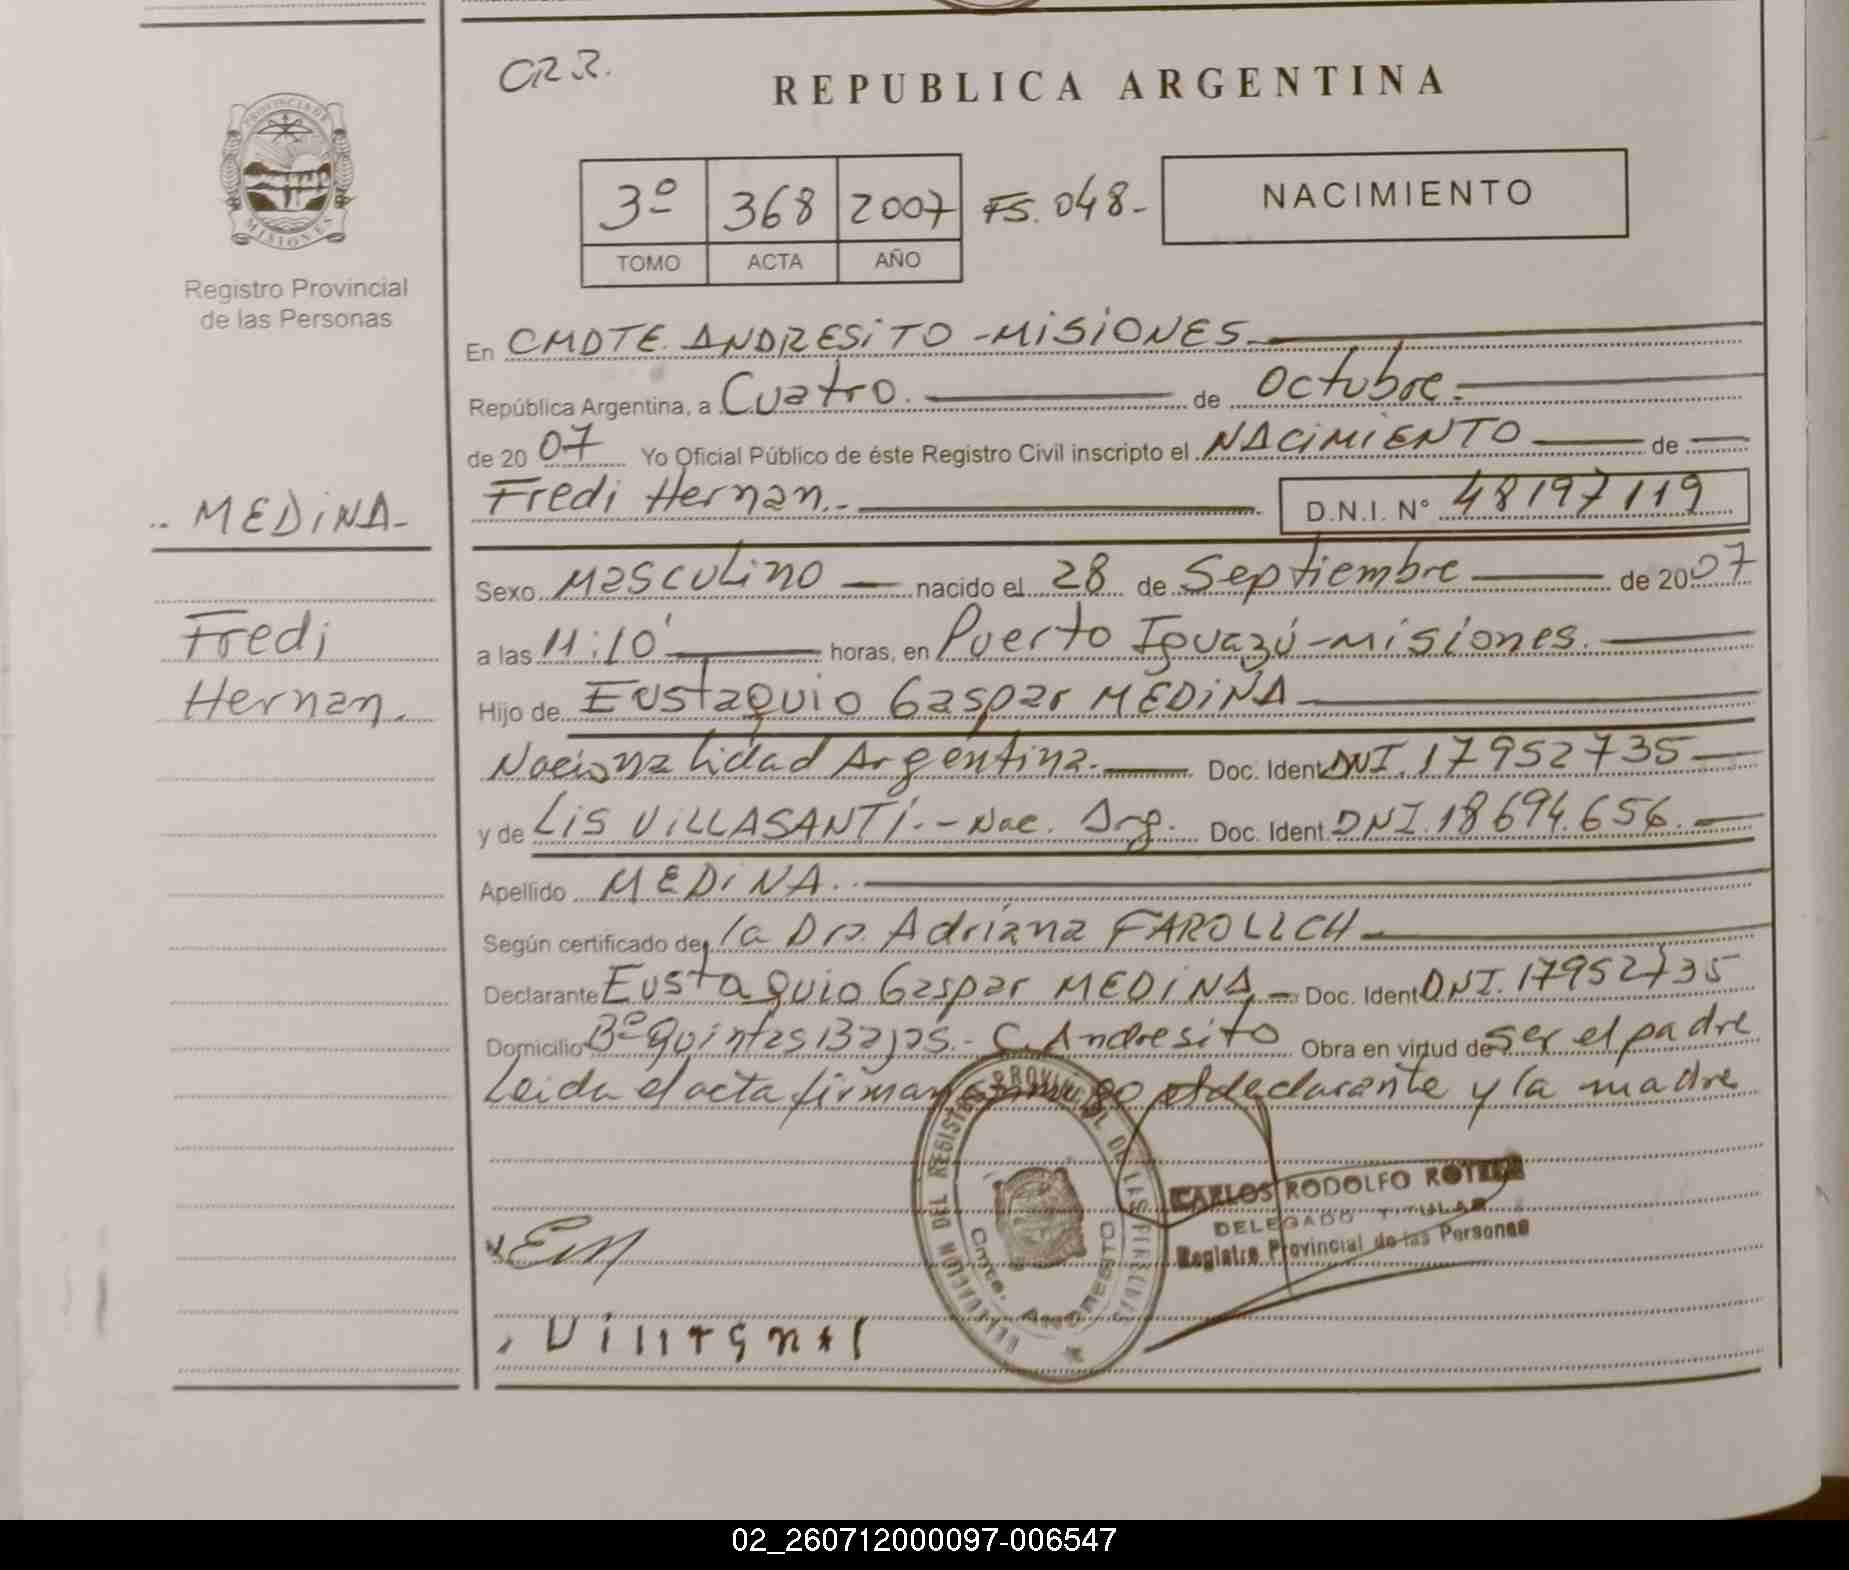 CRR.
REPUBLICA ARGENTINA
PROVINCIA DE
MISIONES
Registro Provincial
de las Personas
3º 368 2007 FS. 048-
TOMO ACTA AÑO
NACIMIENTO
En CMDTE. ANDRESITO - MISIONES
República Argentina, a Cuatro. de Octubre.
de 2007 Yo Oficial Público de éste Registro Civil inscripto el NACIMIENTO de
Fredi Hernan. D.N.I. Nº 48197119
MEDINA-
Fredi
Hernan.
Sexo Masculino nacido el 28 de Septiembre de 2007
a las 11:10' horas, en Puerto Iguazú - Misiones.
Hijo de Eustaquio Gaspar MEDINA
Nacionalidad Argentina. Doc. Ident. DNI. 17952735
y de LIS VILLASANTI. - Nac. Arg. Doc. Ident. DNI. 18694.656.
Apellido MEDINA.
Según certificado de la Dra. Adriana
Declarante Eustaquio Gaspar MEDINA Doc. Ident DNI. 17952735
Domicilio Bº Quintas Bajas. - C. Andresito Obra en virtud de ser el padre
Leida el acta firman el declarante y la madre
DELEGACION DEL REGISTRO PROVINCIAL DE LAS PERSONAS
Cmte. ANDRESITO
CARLOS RODOLFO
DELEGADO TITULAR
Registro Provincial de las Personas
EM
02_260712000097-006547